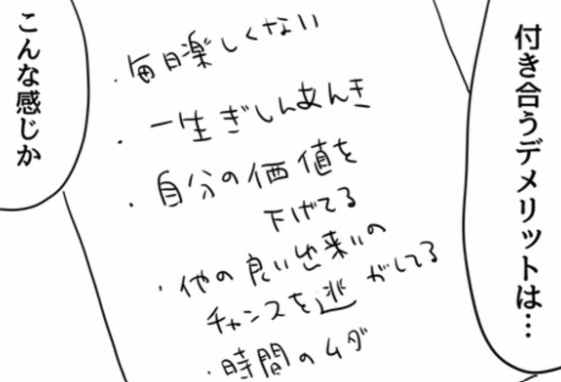 付き合うデメリットは…
・毎日楽しくない
・一生ぎしんあんき
・自分の価値を
下げてる
・他の良い出来いの
チャンスを逃がしてる
・時間のムダ
こんな感じか